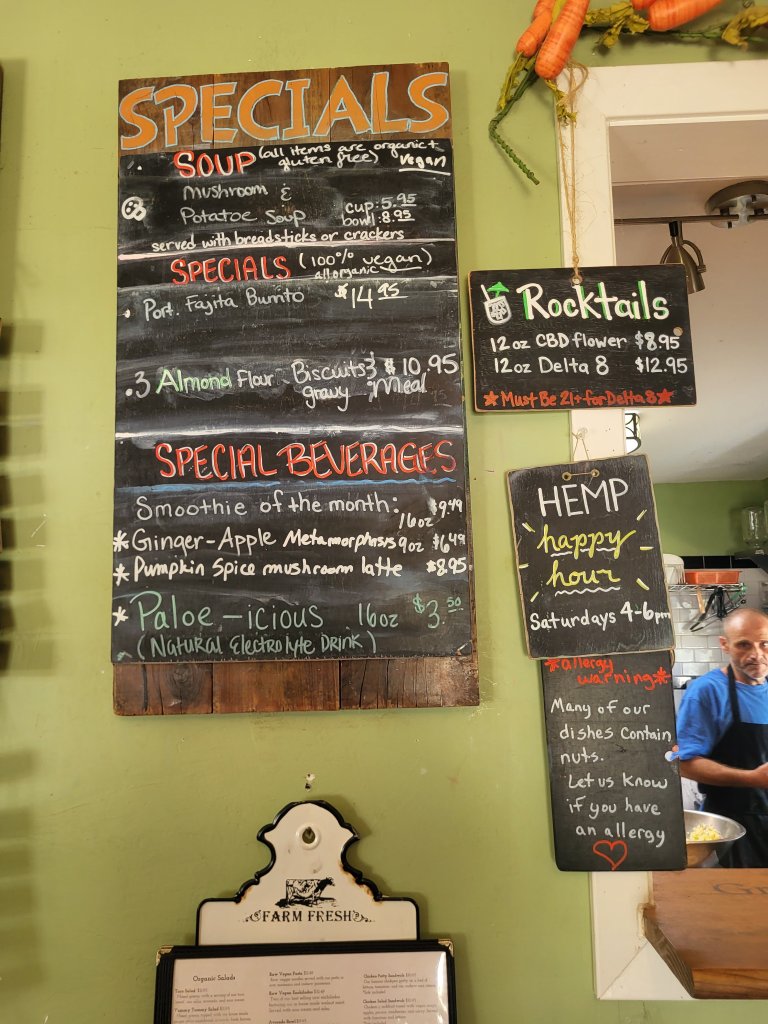 SPECIALS
SOUP (all items are organic + gluten free) vegan
mushroom &
Potatoe Soup
cup: 5.95
bowl: 8.95
served with breadsticks or crackers
SPECIALS (100% vegan)
all organic
Port. Fajita Burrito $14.95
3 Almond Flour Biscuits & $10.95
gravy Meal
SPECIAL BEVERAGES
Smoothie of the month: $9.49
16oz
* Ginger-Apple Metamorphisis 9oz $6.49
* Pumpkin Spice mushroom latte $8.95
* Paloe-icious 16oz $3.50
(Natural Electrolyte Drink)
Rocktails
12 oz CBD flower $8.95
12oz Delta 8 $12.95
* Must Be 21+ for Delta 8 *
HEMP
happy
hour
Saturdays 4-6pm
*allergy
warning*
Many of our
dishes contain
nuts.
Let us know
if you have
an allergy
FARM FRESH
Organic Salads
Taco Salad
Yummy Tummy Salad
Raw Vegan Pasta
Raw Vegan Enchiladas
Avocado Bowl
Chicken Patty Sandwich
Chicken Salad Sandwich